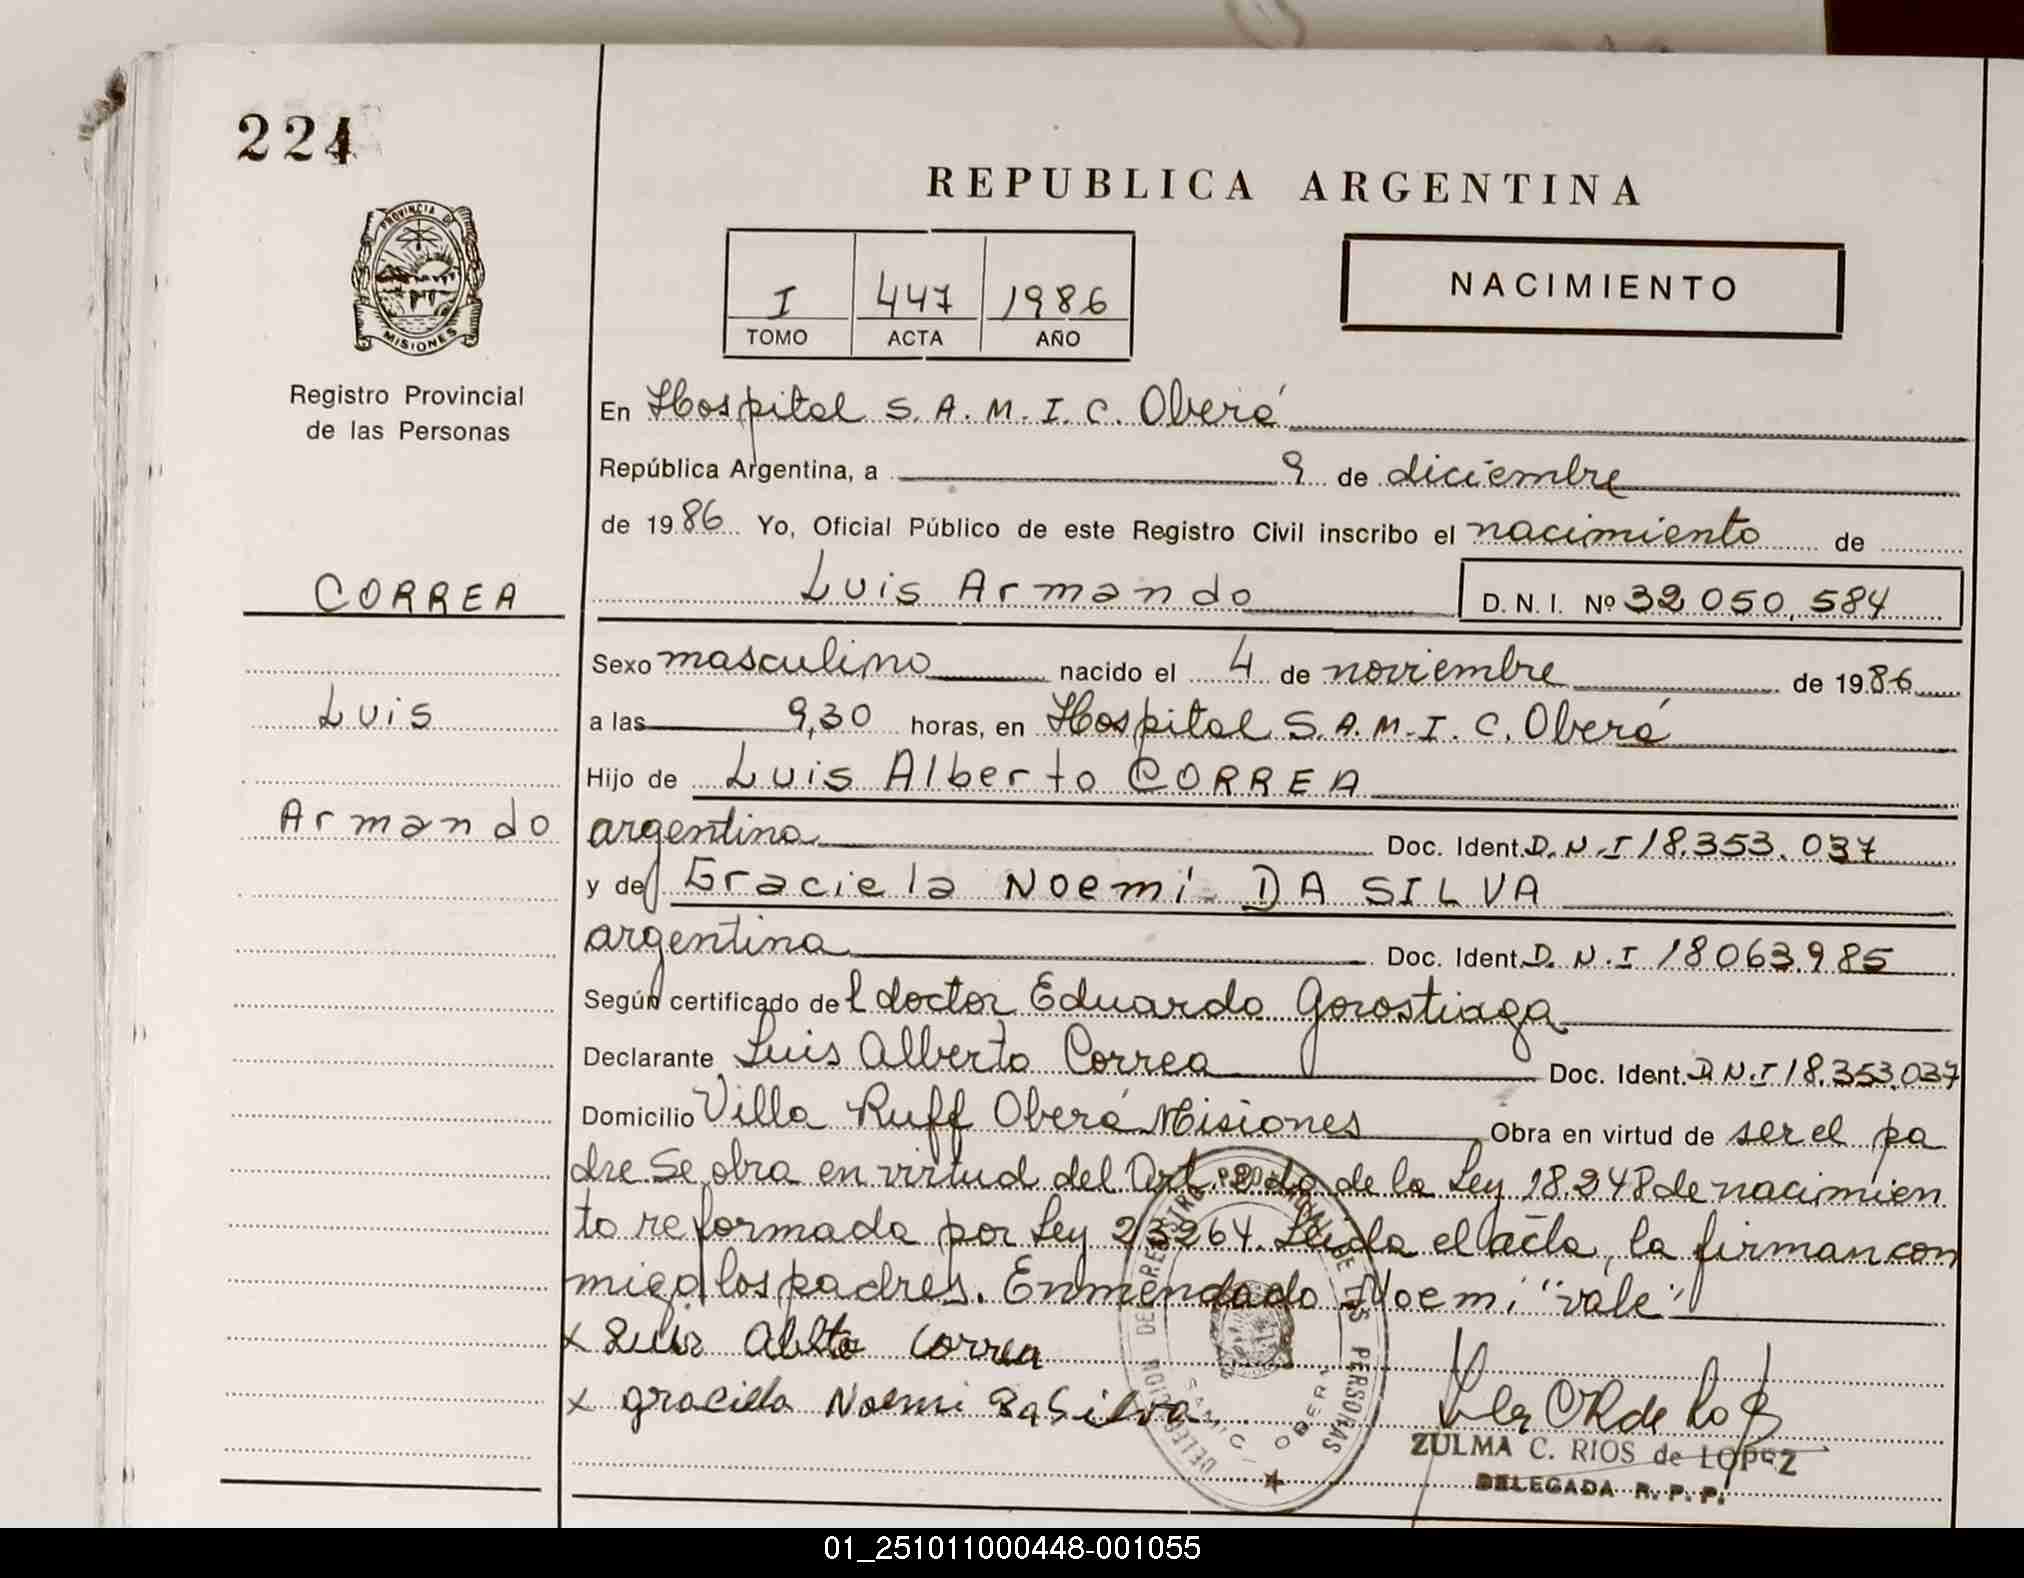 224
REPUBLICA ARGENTINA
PROVINCIA DE
MISIONES
I 447 1986
TOMO ACTA AÑO
NACIMIENTO
Registro Provincial
de las Personas
CORREA
Luis
Armando
En Hospital S. A. M. I. C. Oberá
República Argentina, a 9 de diciembre
de 1986 Yo, Oficial Público de este Registro Civil inscribo el nacimiento de
Luis Armando D. N. I. Nº 32 050.584
Sexo masculino nacido el 4 de noviembre de 1986
a las 9,30 horas, en Hospital S. A. M. I. C. Oberá
Hijo de Luis Alberto CORREA
argentino Doc. Ident. D. N. I 18.353.037
y de Graciela Noemí DA SILVA
argentina Doc. Ident. D. N. I 18063.985
Según certificado del doctor Eduardo Gorostiaga
Declarante Luis Alberto Correa Doc. Ident. D N. I 18.353.037
Domicilio Villa Ruff Oberá Misiones Obra en virtud de ser el pa
dre. Se obra en virtud del Art. 2do de la Ley 18.248 de nacimien
to reformada por Ley 23264. Leída el acta, la firman con
migo los padres. Enmendado Noemí "vale"
x Luis Correa
x Graciela Noemi Da Silva
DELEGACION DE REGISTRO PROVINCIAL DE LAS PERSONAS
SAMIC - OBERA
ZULMA C. RIOS de LOPEZ
DELEGADA R. P. P.
01_251011000448-001055